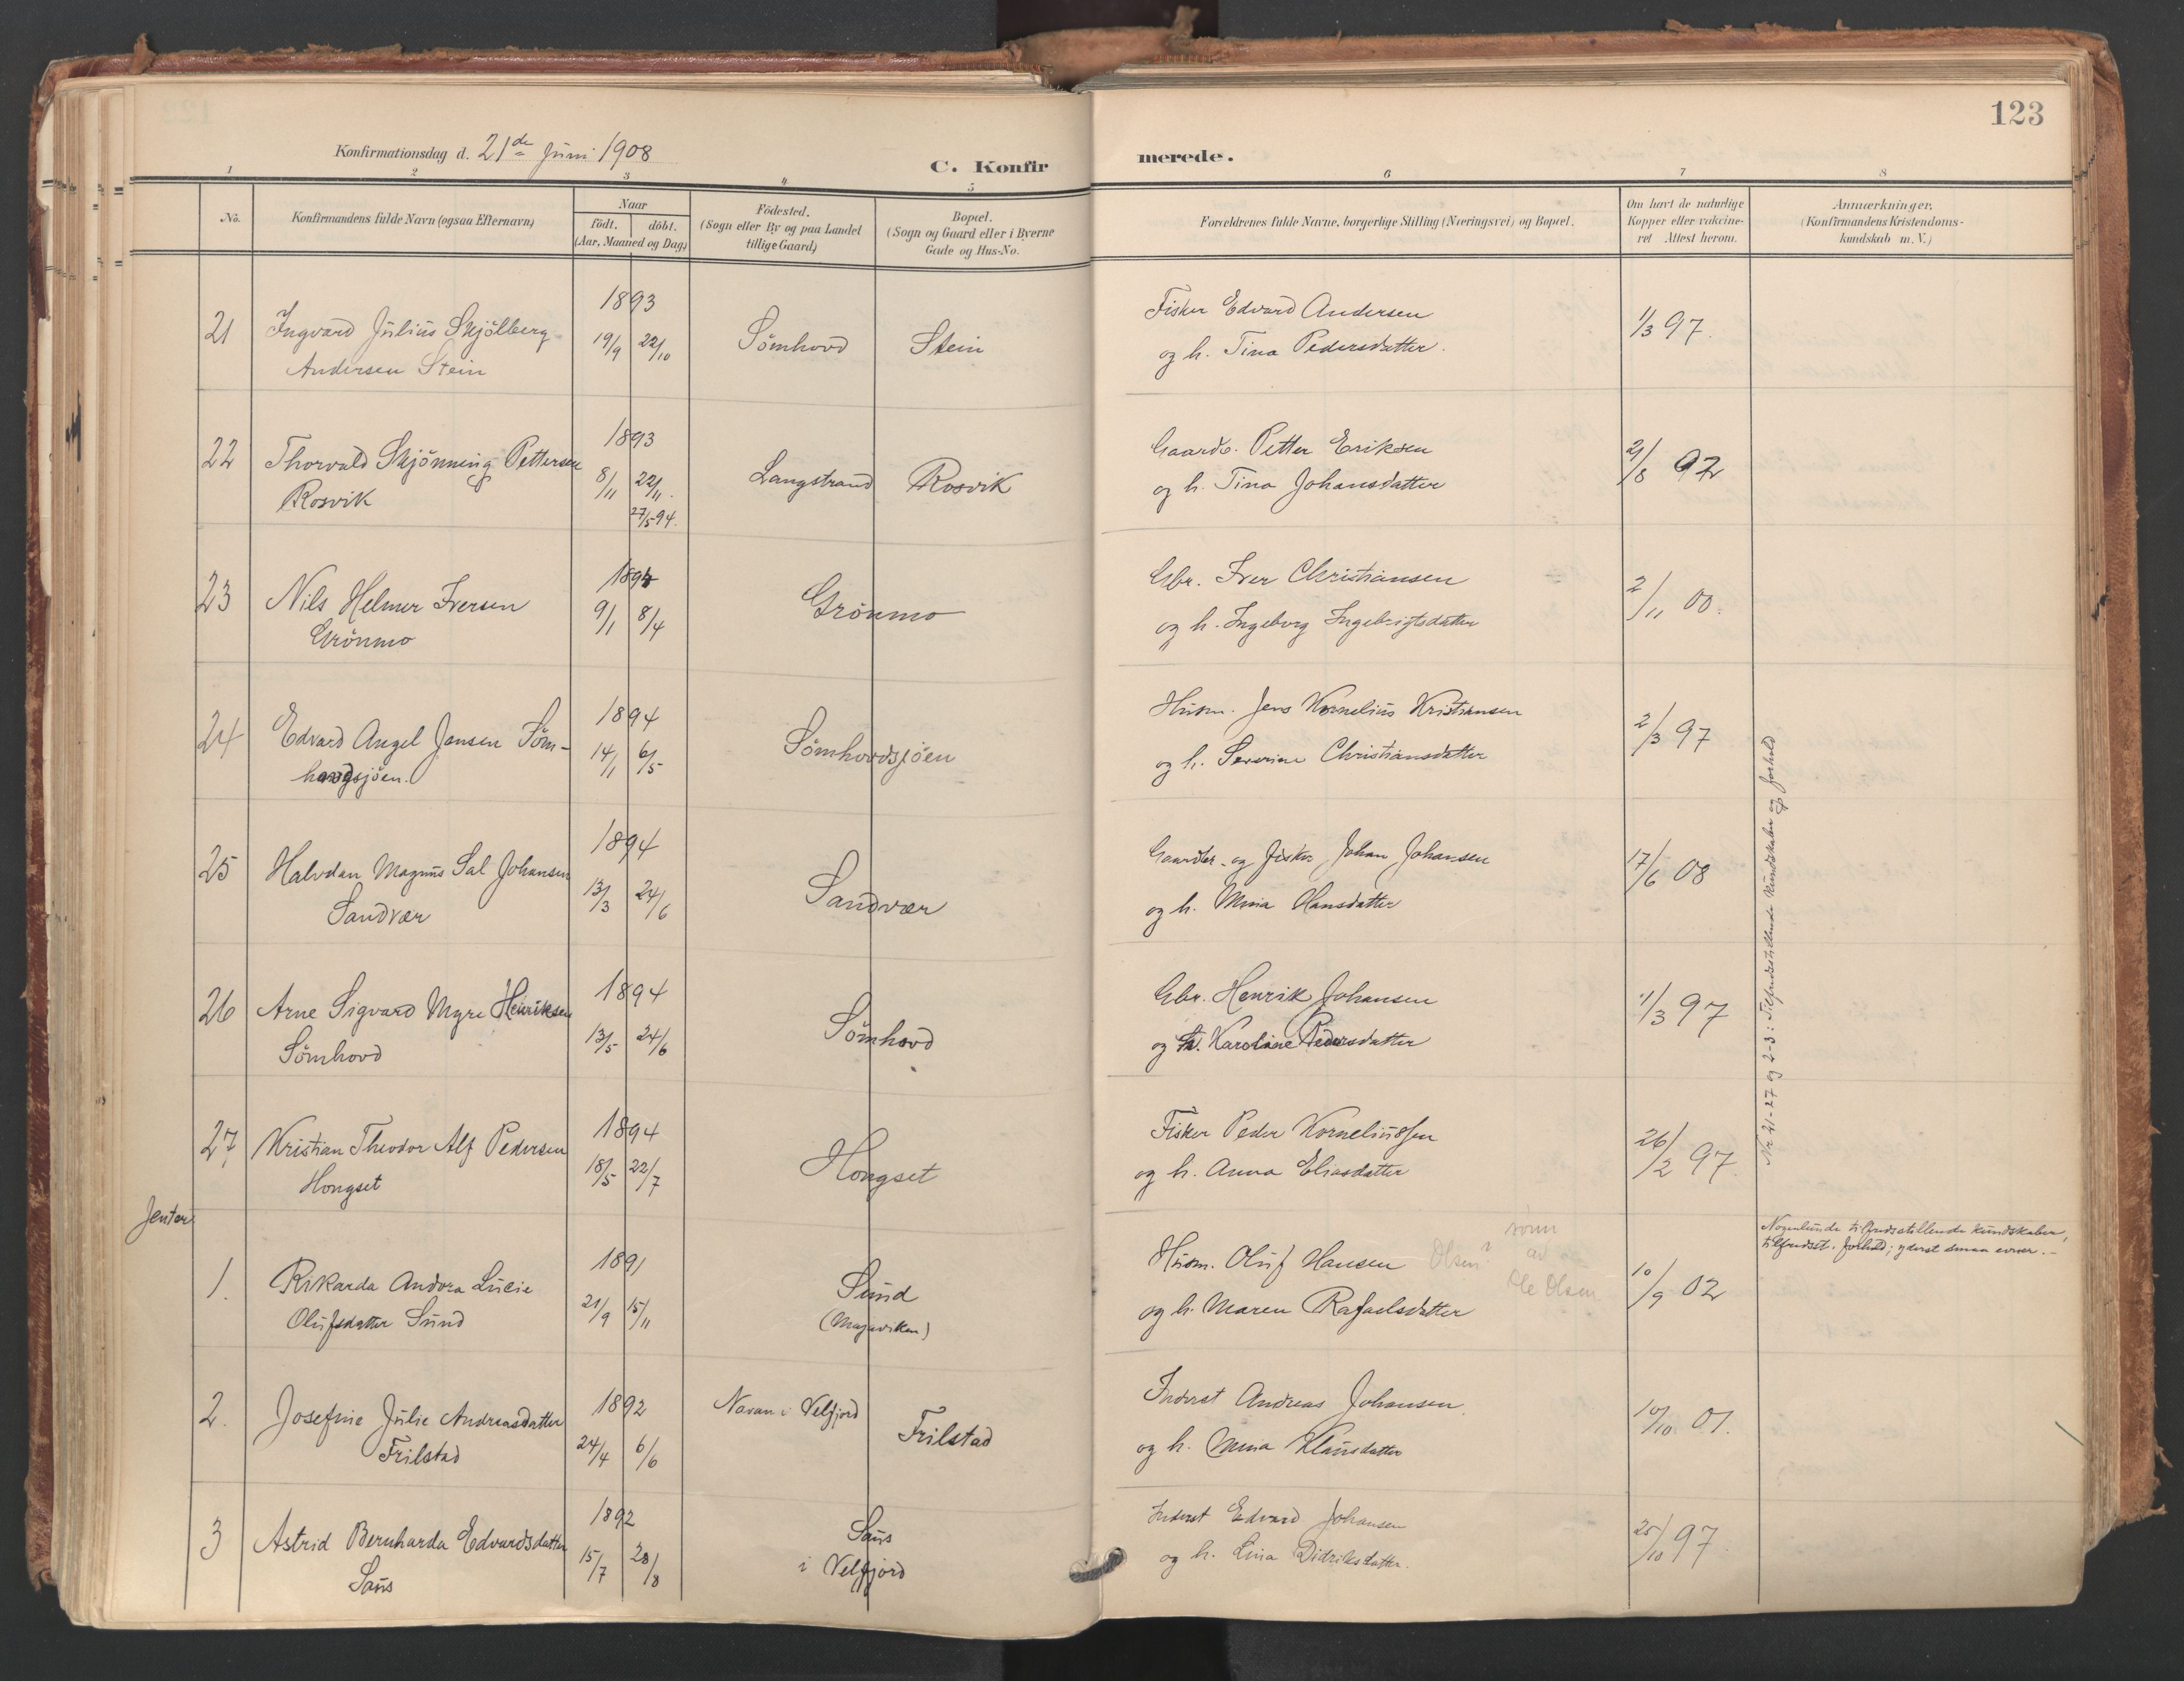 123
Konfirmationsdag d. 21de Juni 1908
C. Konfirmerede.
1 2 3 4 5 6 7 8
No.
Konfirmandens fulde Navn (ogsaa Efternavn)
Naar
födt. döbt.
(Aar, Maaned og Dag)
Födested.
(Sogn eller By og paa Landet
tillige Gaard)
Bopæl.
(Sogn og Gaard eller i Byerne
Gade og Hus-No.
Forældrenes fulde Navne, borgerlige Stilling (Næringsvei) og Bopæl.
Om havt de naturlige
Kopper eller vakcine-
ret Attest herom.
Anmærkninger,
(Konfirmandens Kristendoms-
kundskab m. V.)
21 Ingvard Julius Skjölberg
Andersen Stein
1893
19/9 22/10
Sömhovd Stein
Fisker Edvard Andersen
og h. Tina Pedersdatter.
1/3 97.
22 Thorvald Skjönning Pettersen
Rosvik
1893
8/11 22/11.
27/5 94.
Langstrand Rosvik
Gaardb. Petter Eriksen
og h. Tina Johansdatter
2/8 02
23 Nils Helmer Iversen
Grönmo
1894
9/1 8/4
Grönmo
Gbr. Iver Christiansen
og h. Ingeborg Ingebrigtsdatter
2/11 00.
24 Edvard Angel Jensen Söm-
hovdsjöen.
1894
14/1 6/5
Sömhovdsjöen
Husm. Jens Kornelius Kristiansen
og h. Severine Christiansdatter
2/3 97
25 Halvdan Magnus Sal Johansen
Sandvær
1894
13/3 24/6
Sandvær
Gaardbr. og fisker Johan Johansen
og h. Mina Hansdatter
17/6 08
26 Arne Sigvard Myre Henriksen
Sömhovd
1894
13/5 24/6
Sömhovd
Gbr. Henrik Johansen
og h. Karoline Pedersdatter
1/3 97
27 Kristian Theodor Alf Pedersen
Hongset
1894
18/5 22/7
Hongset
Fisker Peder Korneliussen
og h. Anna Eliasdatter
26/2 97.
Nr. 21-27 og 2-3: Tilfredsstillende kundskaber og forhold
Jenter
1. Rikarda Andora Lucie
Olufsdatter Sund
1891
21/9 15/11
Sund
(Majaviken)
Husm. Oluf Hansen Olsen?
sönn
av
Ole Olsen
og h. Maren Rafaelsdatter
10/9 02
Nogenlunde tilfredsstillende kundskaber,
tilfredsst. forhold; yderst smaa evner. -
2. Josefine Julie Andreasdatter
Frilstad
1892
24/4 6/6
Navan i Velfjord Frilstad
Inderst Andreas Johansen
og h. Mina Klausdatter
10/10 01.
3 Astrid Bernharda Edvardsdatter
Saus
1892
15/7 28/8
Saus
i Velfjord
Inderst Edvard Johansen
og h. Lina Didriksdatter.
25/10 97.